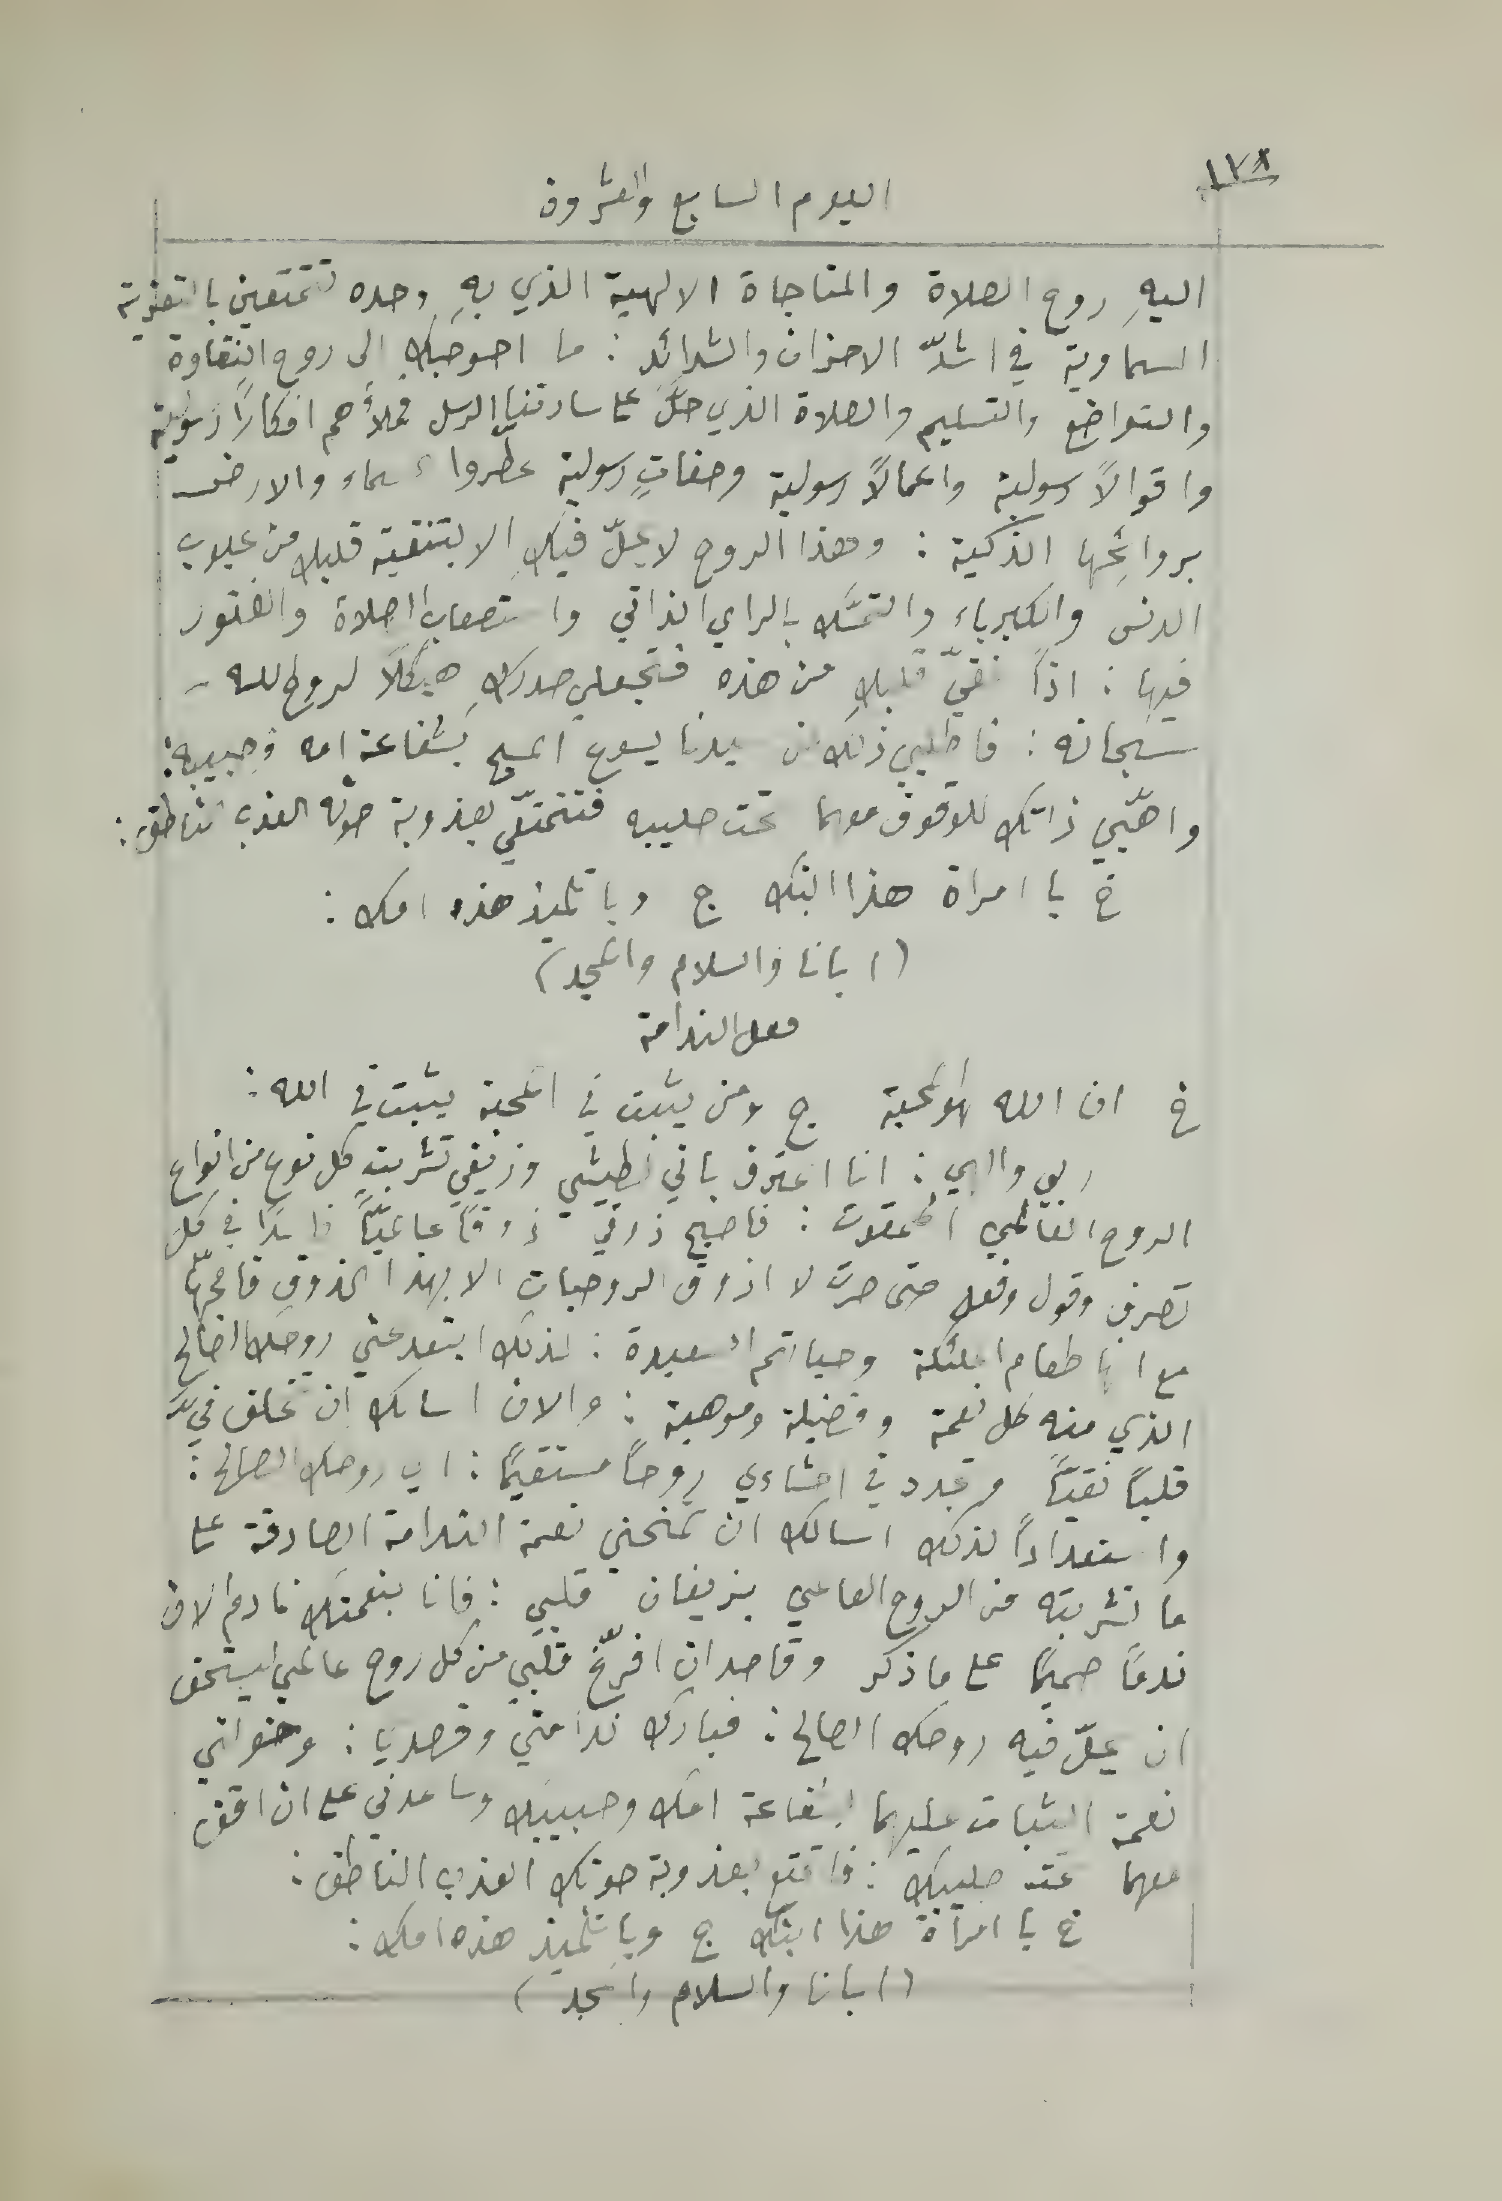 ١٧٨
اليوم السابع والعشرون
اليهِ روح الصلاة والمناجاة الالهية الذي بهِ وحده تتمتعين بالتعزية
السماوية في اشدّ الاحزان والشدائد : ما احوجَكِ الى روح النقاوة
والتواضع والتسليم والصلاة الذي حلَّ على ساداتنا الرسل فملأهم افكارًا رسولية
واقوالاً رسولية واعمالاً رسولية وصفاتٍ رسولية عطّروا السماء والارض
بروائحها الذكية : وهذا الروح لا يحلّ فيكِ الا بتنقية قلبك من عيوب
الدنس والكبرياء والتمسّك بالراي الذاتي واستصعاب الصلاة والفتور
فيها : اذًا نقّي قلبكِ من هذه فتجعلي صدركِ هيكلاً لروح الله
سبحانه : فاطلبي ذلك من سيدنا يسوع المسيح بشفاعة امه وحبيبه :
واهّبي ذاتك للوقوف معهما تحت صليبه فتتمتعي بعذوبة صوته العذب الناطق :
خ يا امراة هذا ابنك ج ويا تلميذ هذه امك :
(ابانا والسلام والمجد)
فعل الندامة
خ ان الله هو المحبة ج ومن يثبت في المحبة يثبت في الله :
ربي والهي : انا اعترف باني لطيشي وزيغي تشربت كل نوع من انواع
الروح العالمي الممقوت : فاصبح ذوقي ذوقًا عالميًّا فاسدًا في كل
تصرف وقول وفعل حتى صرت لا اذوق الروحيات الا بهذا الذوق فامجّها
مع انها طعام الملئكة وحياتهم السعيدة : لذلك ابتعد عني روحك الصالح
الذي منه كل نعمة وفضيلة وموهبة : والان اسالك ان تخلق فيّ
قلبًا نقيًّا وتجدد في احشاءي روحًا مستقيمًا : اي روحك الصالح :
واستعدادًا لذلك اسالك ان تمنحني نعمة الندامة الصادقة على
ما تشربته من الروح العالمي بزيغان قلبي : فانا بنعمتك نادم الان
ندمًا صميمًا على ما ذكر وقاصد ان افرّغ قلبي من كل روح عالمي ليستحق
ان يحلّ فيه روحك الصالح : فبارك ندامتي وقصديا : وخولني
نعمة الثبات عليهما بشفاعة امك وحبيبك وساعدني على ان اقف
معهما تحت صليبك : فاتمتع بعذوبة صوتك العذب الناطق :
خ يا امرأة هذا ابنك ج ويا تلميذ هذه امك :
(ابانا والسلام والمجد)